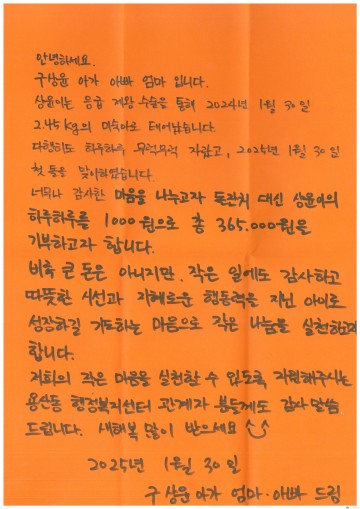 안녕하세요.
구상윤 아가 아빠 엄마 입니다.
상윤이는 응급 제왕 수술을 통해 2024년 1월 30일
2.45kg의 미숙아로 태어났습니다.
다행히도 하루하루 무럭무럭 자랐고, 2025년 1월 30일
첫 돌을 맞이하였습니다.
너무나 감사한 마음을 나누고자 돌잔치 대신 상윤이의
하루하루를 1000원으로 총 365,000원을
기부하고자 합니다.
비록 큰 돈은 아니지만, 작은 일에도 감사하고
따뜻한 시선과 지혜로운 행동력을 지닌 아이로
성장하길 기도하는 마음으로 작은 나눔을 실천하고자
합니다.
저희의 작은 마음을 실천할 수 있도록 지원해주시는
용산동 행정복지센터 관계자 분들께도 감사 말씀
드립니다. 새해복 많이 받으세요
2025년 1월 30일
구상윤 아가 엄마·아빠 드림